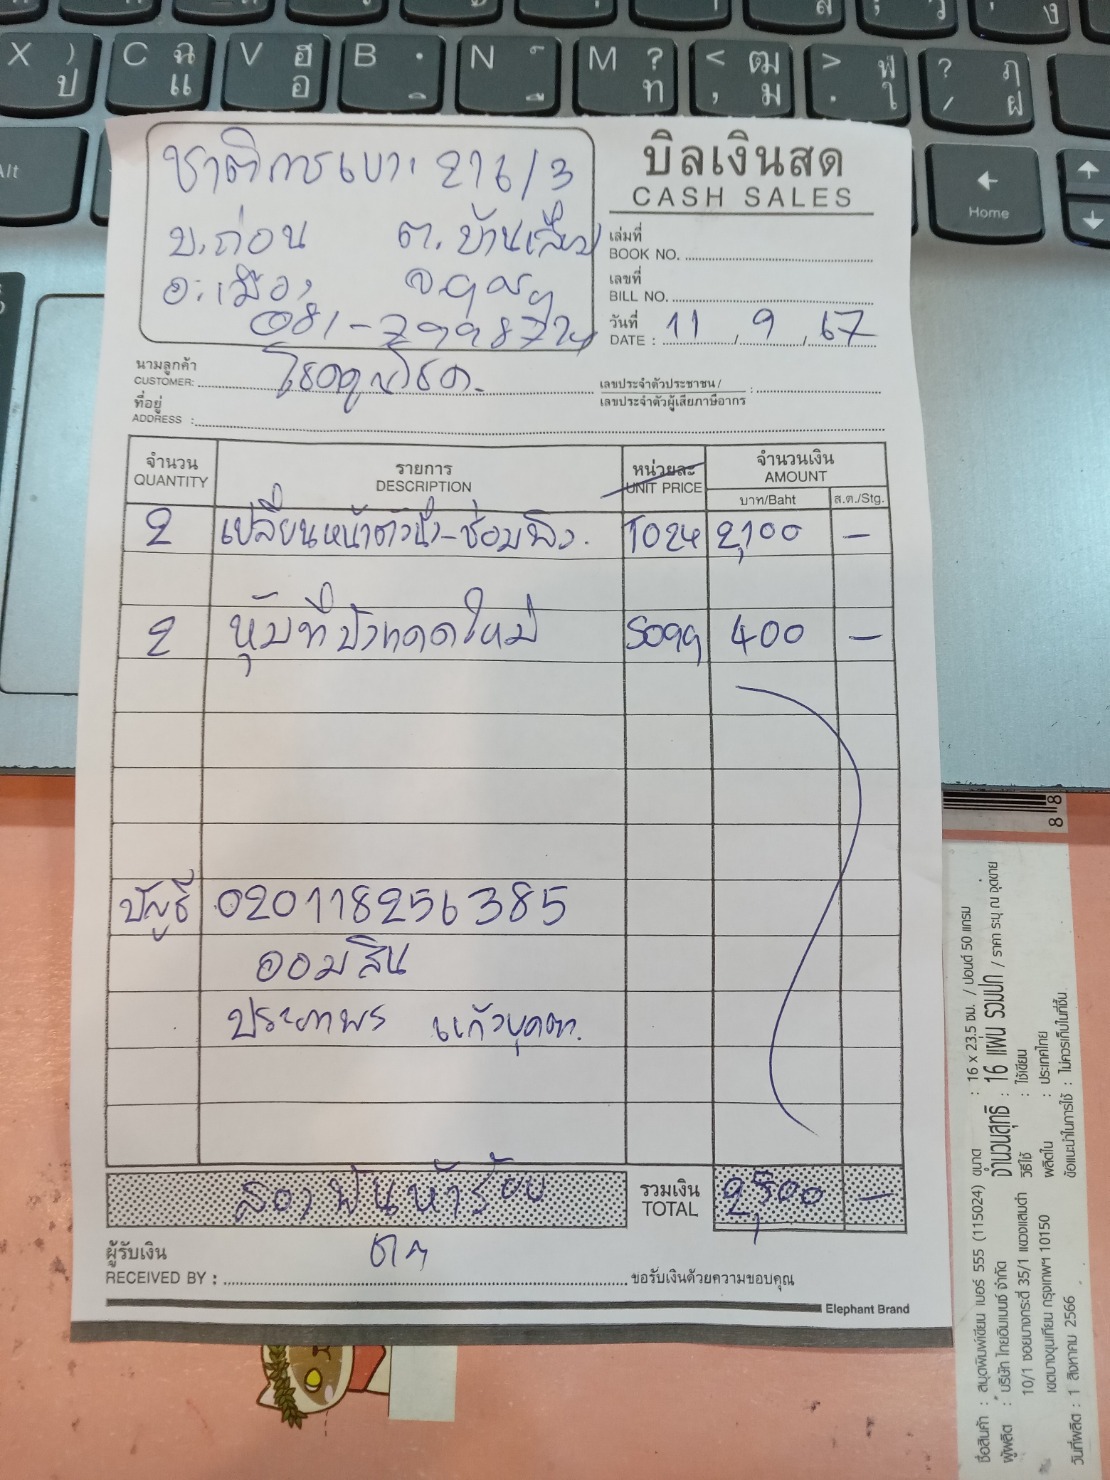 X ) ป
C ฉ แ
V ฮ อ
B
N
M ? ท
< ฒ , ม
> ฬ . ใ
? ฦ / ฝ
Alt
Home
ชาติการเบาะ 216/3
บ.ถ่อน ต.บ้านเลื่อม
อ.เมือง จ.อุดรฯ
บิลเงินสด
CASH SALES
เล่มที่
BOOK NO.
เลขที่
BILL NO.
วันที่
DATE : 11 / 9 / 67
นามลูกค้า
CUSTOMER: โชคคูณโชค.
เลขประจำตัวประชาชน / :
เลขประจำตัวผู้เสียภาษีอากร
ที่อยู่
ADDRESS :
จำนวน รายการ หน่วยละ จำนวนเงิน
QUANTITY DESCRIPTION UNIT PRICE AMOUNT
บาท/Baht ส.ต./Stg.
2 เปลี่ยนหน้าตัวนั่ง-ซ่อมพิง. T024 2,100 —
2 หุ้มที่บังแดดใหม่ 400 —
บัญชี 020118256385
ออมสิน
ประภาพร
สองพันห้าร้อย รวมเงิน 2,500 —
TOTAL
ผู้รับเงิน
RECEIVED BY : ขอรับเงินด้วยความขอบคุณ
Elephant Brand
8 8
ชื่อสินค้า : สมุดพิมพ์เขียน เบอร์ 555 (115024) ขนาด : 16 x 23.5 ซม. / ปอนด์ 50 แกรม
ผู้ผลิต : บริษัท ไทยอิมเมนซ์ จำกัด จำนวนสุทธิ : 16 แผ่น รวมปก / ราคา ระบุ ณ จุดขาย
10/1 ซอยบางกระดี่ 35/1 แขวงแสมดำ วิธีใช้ : ใช้เขียน
เขตบางขุนเทียน กรุงเทพฯ 10150 ผลิตใน : ประเทศไทย
วันที่ผลิต : 1 สิงหาคม 2566 ข้อแนะนำในการใช้ : ไม่ควรเก็บในที่ชื้น